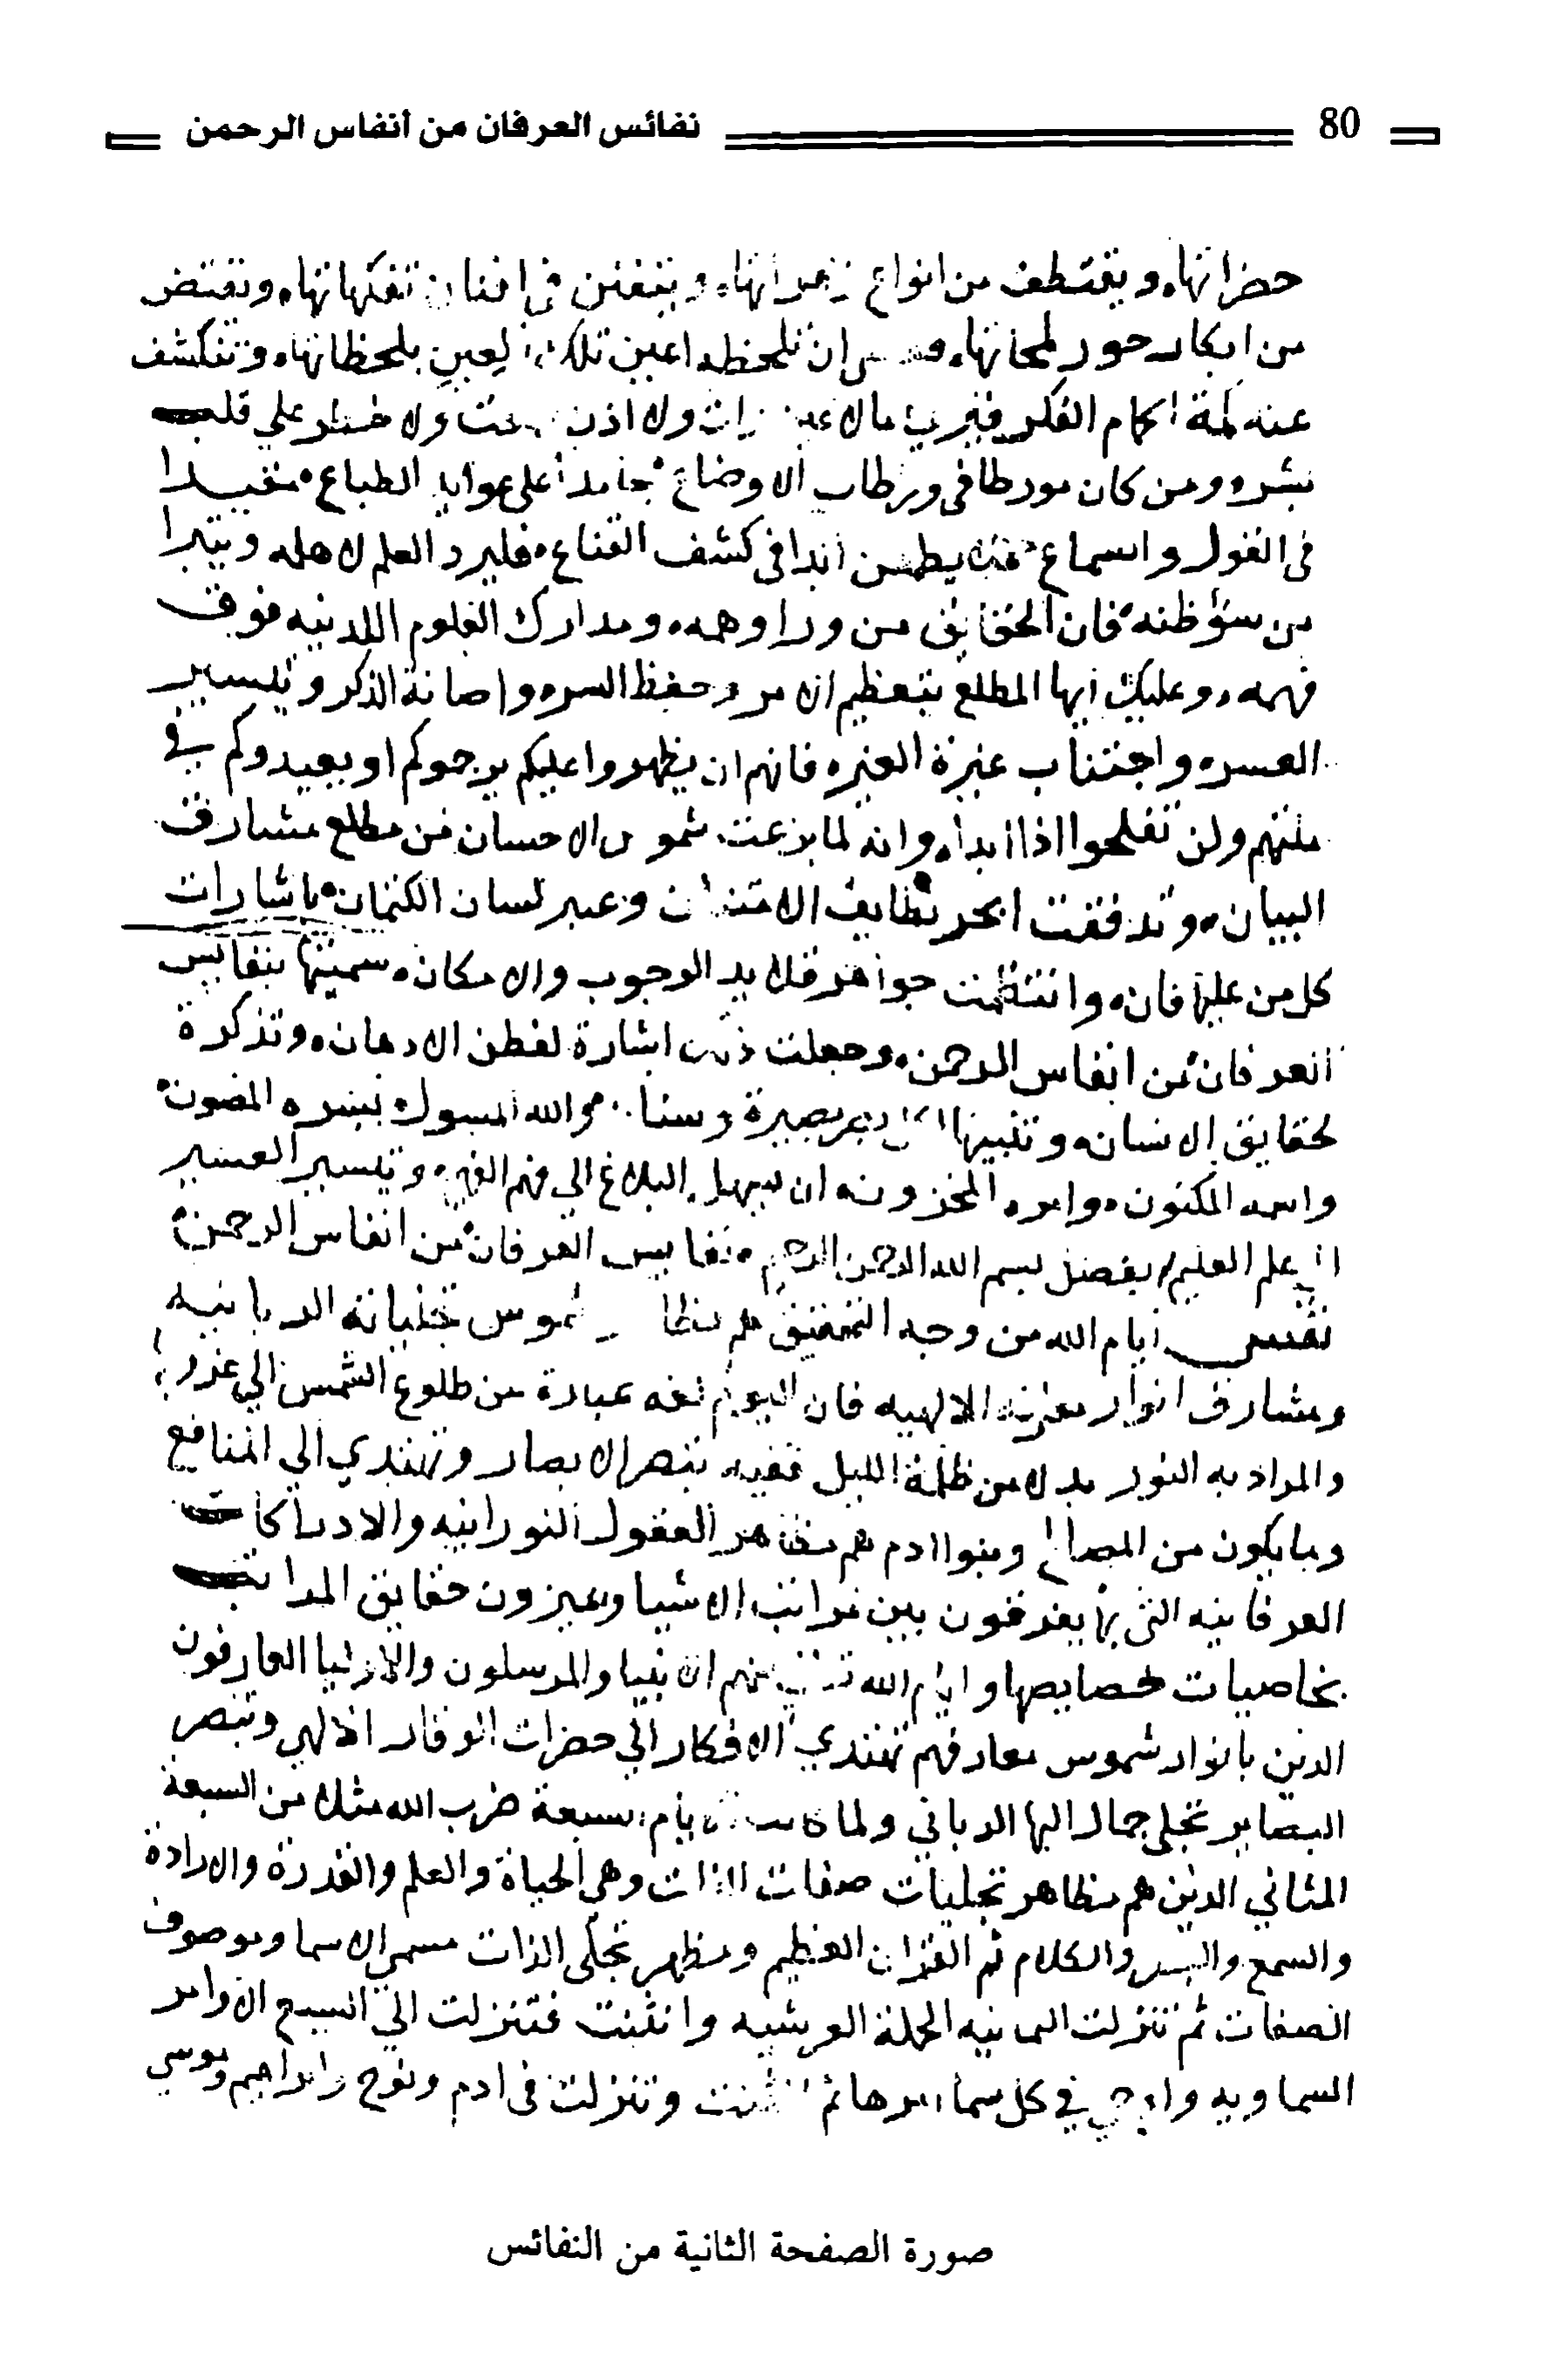 80 نفائس العرفان من أنفاس الرحمن
حضراتها، ويقتطف من انواع زهراتها، ويتفنن في افنان تفكهاتها، ويقتض
من ابكار حور لمحاتها، ان تلحظه اعين تلك العين بلحظاتها، وتنكشف
عنه الفكر فيري مالا عين رات ولا اذن سمعت ولا خطر علي قلب
بشر، ومن كان مورطا في ورطات الاوضاع، جامدا علي عوايد الطباع، مقيدا
في القول واسماع ابدا في كشف القناع، فليرد العلم لاهله ويتبرا
من سؤ ظنه، فان الحقايق من ورا وهمه، ومدارك العلوم اللدنيه فوق
فهمه، وعليك ايها المطلع بتعظيم الامر، وحفظ السر، وصانة الذكر وتيسير
العسر، واجتناب الغير، فانهم ان يظهروا عليكم يرجموكم او يعيدوكم في
ملتهم ولن تفلحوا اذا ابدا، وانه لما بزغت شموس الاحسان من مطلع مشارق
البيان، وتدفقت ابحر الامتنان وعبر لسان الكتمان، باشارات
كل من عليها فان، وانتظمت جواهر قلايد الوجوب والامكان، سميتها بنفايس
العرفان من انفاس الرحمن، وجعلت ذلك اشارة لفطن الاذهان، وتذكرة
لحقايق الانسان، وتنبيها بصيرة والله المسول بسره المصون،
واسمه المكنون، وامره المخزون، ان يسهل البلاغ الي فهم وتيسير العسير
علم العليم بفضل بسم الله الرحمن الرحيم نفايس العرفان من انفاس الرحمن،
نفيس ايام الله من وجه التحقيق هم شموس تجلياته الربانيه
ومشارق انوار الالهيه فان اليوم لغه عبارة من طلوع الشمس الي غروبها
والمراد به النور بدلا من ظلمة الليل ففيه تبصر الابصار وتهتدي الي المنافع
وما يكون من المصالح وبنوا ادم هم مظاهر العقول النورانيه والادراكات
العرفانيه التي بها يفرقون بين مراتب الاشيا ويميزون حقايق المراتب
بخاصيات خصايصها وايام الله منهم الانبيا والمرسلون والاوليا العارفون
الذين بانوار شموس معارفهم تهتدي الافكار الي حضرات الوقار الالهي وتبصر
البصاير تجلي جمال الرباني ولما كانت الايام سبعة ضرب الله مثلا من السبعة
المثاني الذين هم مظاهر تجليات صفات الذات وهي الحياة والعلم والقدرة والارادة
والسمع والبصر والكلام ثم القران العظيم ومظهر تجلي الذات مسمي الاسما وموصوف
الصفات، ثم تنزلت الحملة العرشيه وانثنت فتنزلت الي السبع الاوامر
السماويه واوحي في كل سما امرها ثم انثنت وتنزلت في ادم ونوح وابراهيم وموسي
صورة الصفحة الثانية من النفائس